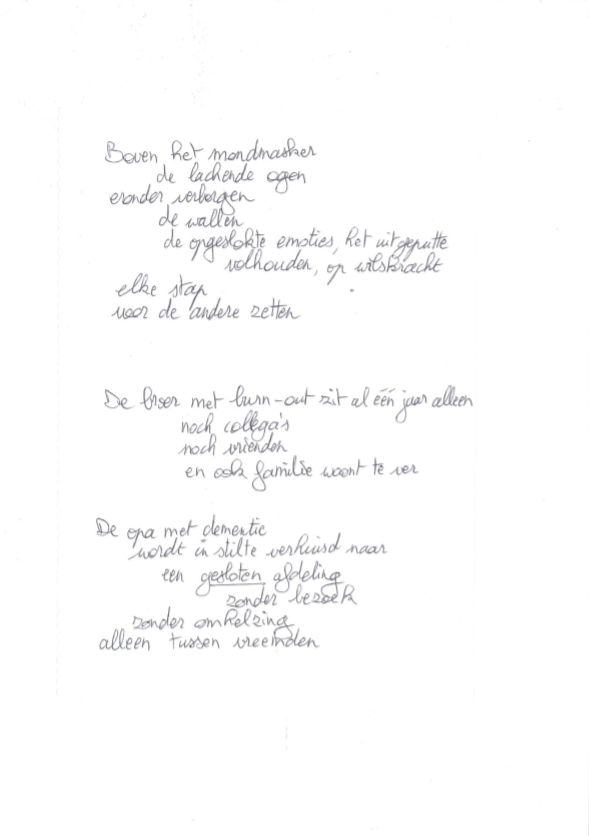 Boven het mondmasker
de lachende ogen
eronder verborgen
de wallen
de opgeslokte emoties, het uitgeputte
volhouden, op wilskracht
elke stap
voor de andere zetten
De boer met burn-out zit al één jaar alleen
noch collega's
noch vrienden
en ook familie woont te ver
De opa met dementie
wordt in stilte verhuisd naar
een gesloten afdeling
zonder bezoek
zonder omhelzing
alleen tussen vreemden